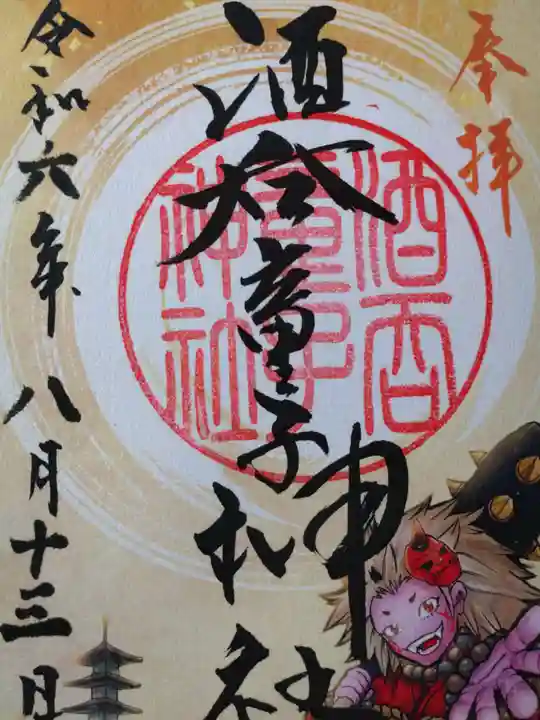 奉拝
酒呑童子神社
酒呑童子神社
令和六年八月十三日